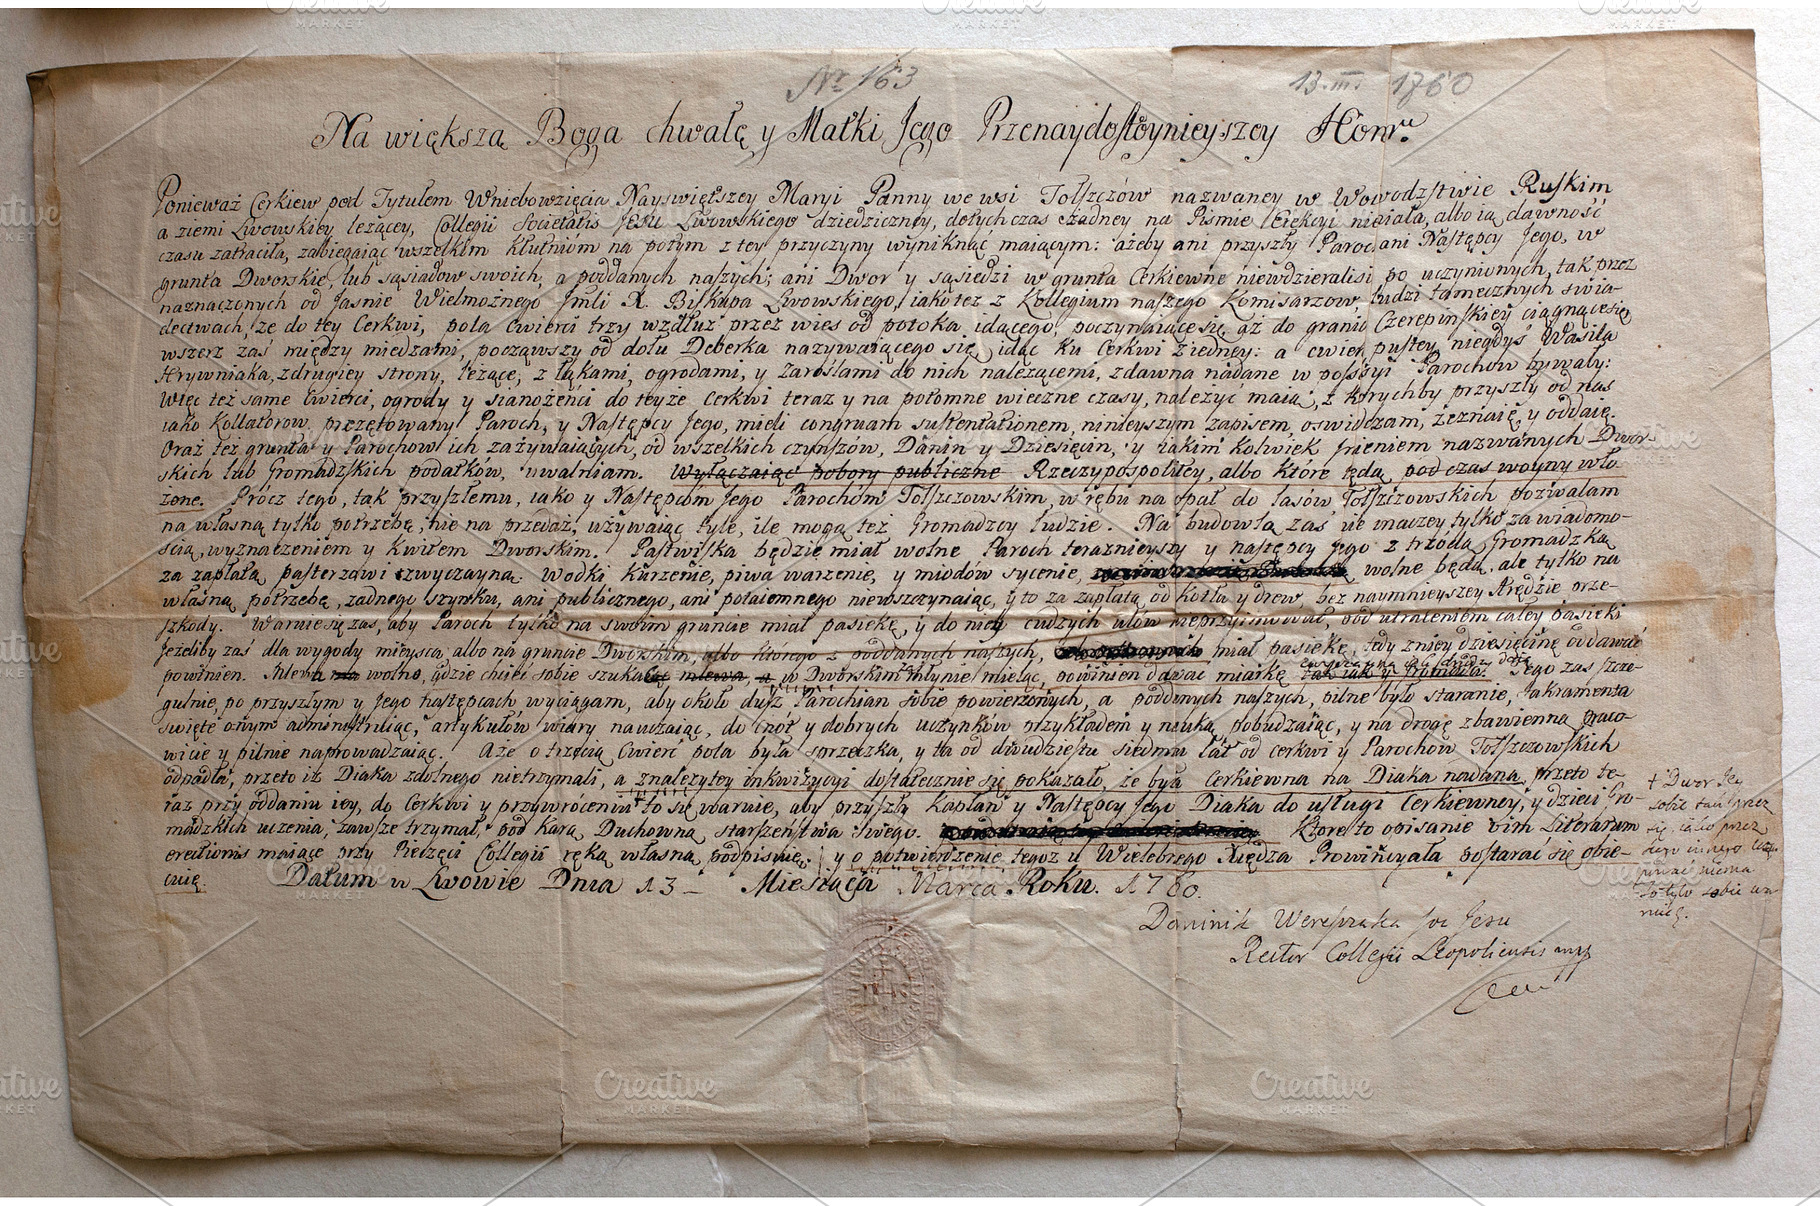 Nr 163
13.III. 1760
Na większą Boga chwałę y Matki Jego Przenaydostoynieyszey Honᵒʳ.
Ponieważ Cerkiew pod Tytułem Wniebowzięcia Nayswiętszey Maryi Panny we wsi Tołszczów nazwaney w Wowodzstwie Ruskim
a ziemi Lwowskiey leżącey, Collegii Societatis Jesu Lwowskiego dziedziczney, dotychczas żadney na Piśmie Erekcyi niemiała, albo ią dawność
czasu zatraciła, zabiegaiąc wszelkim kłutniom na potym z tey przyczyny wyniknąć maiącym: ażeby ani przyszły Paroch ani Następcy Jego, w
grunta Dworskie, lub sąsiadow swoich, a poddanych naszych; ani Dwor y sąsiedzi w grunta Cerkiewne niewdzieralisi po uczynionych, tak przez
naznaczonych od Jaśnie Wielmożnego Jmści X. Biskupa Lwowskiego, iako też z Kollegium naszego Komisarzow, ludzi tamecznych świa-
dectwach, że do tey Cerkwi, pola Cwierci trzy wzdłuż przez wieś od potoka idącego, poczynaiące się aż do granic Czerepińskiey ciągnące się
wszerz zaś między miedzami, począwszy od dołu Deberka nazywaiącego się idąc ku Cerkwi z iedney: a cwierć pustey niegdyś Wasila
Hrywniaka, z drugiey strony, leżące, z łąkami, ogrodami, y zaroslami do nich należącemi, zdawna nadane w possesyi Parochow bywały:
Więc też same Cwierci, ogrody y sianożenci do teyże Cerkwi teraz y na potomne wieczne czasy, należyć maią, z ktorychby przyszły od nas
iako Kollatorow prezętowany Paroch, y Następcy Jego, mieli congruam sustentationem, ninieyszym zapisem, oswidczam, zeznaię, y oddaię.
Oraz też grunta y Parochow ich zażywaiących, od wszelkich czynszów, Danin y Dziesięcin, y iakim kolwiek Jmieniem nazwanych Dwor-
skich lub Gromadzskich podatków, uwalniam. Wyłączaiąc pobory publiczne Rzeczypospolitey, albo które będą pod czas woyny wło-
żone. Procz tego, tak przyszłemu, iako y Następcom Jego Parochom Tołszczowskim, w rębu na opał do lasów Tołszczowskich pozwalam
na własną tylko potrzebę, nie na przedaż, używaiąc tyle, ile mogą też Gromadzcy ludzie. Na budowlą zaś nie inaczey tylko za wiadomo-
ścią, wyznaczeniem y kwitem Dworskim. Pastwiska będzie miał wolne Paroch teraznieyszy y następcy Jego z trzodą Gromadzką
za zapłatą pasterzowi zwyczayną. Wodki kurzenie, piwa warzenie, y miodów sycenie, wolne będą, ale tylko na
własną potrzebę, żadnego szynku, ani publicznego, ani potaiemnego niewszczynaiąc, y to za zapłatą od kotła y drew, bez naymnieyszey Arędzie prze-
szkody. Waruie się zaś, aby Paroch tylko na swoim gruncie miał pasiekę, y do niey cudzych ulów nieprzyimował, pod utraceniem całey pasieki
Jeżeliby zaś dla wygody mieysca, albo na gruncie Dworskim, albo ktorego z poddanych naszych, miał pasiekę, tedy z niey dziesięcinę oddawać
powinien. Mlewa wolno, gdzie chcieć sobie szukać mlewa, a w Dworskim Młynie mieląc, powinien dawać miarkę tak iak y Gromada. Jego zaś szcze-
gulnie, po przyszłym y Jego następcach wyciągam, aby około dusz Parochian sobie powierzonych, a poddanych naszych, pilne było staranie, Sakramenta
święte onym administruiąc, artykułow wiary nauczaiąc, do cnót y dobrych uczynków przykładem y nauką pobudzaiąc, y na drogę zbawienną praco-
wicie y pilnie naprowadzaiąc. Aże o trzecią Cwierć pola była sprzeczka, y ta od dwudziestu siedmiu lat od cerkwi y Parochow Tołszczowskich
odpadła, przeto iż Diaka zdolnego nietrzymali, a z należytey inkwizycyi dostatecznie się pokazało, że była Cerkiewna na Diaka nadana, przeto te-
raz przy oddaniu iey, do Cerkwi y przywróceniu to się waruie, aby przyszły Kapłan y Następcy Jego Diaka do usługi Cerkiewney, y dzieci Gro-
madzkich uczenia, zawsze trzymał, pod karą Duchowną starszeństwa swego. Ktore to opisanie vim Literarum
erectionis maiące przy Pieczęci Collegii ręką własną podpisuię; y o potwierdzenie tegoż u Wielebnego Xiędza Prowincyała postarać się obie-
cuię. Datum w Lwowie Dnia 13 - Miesiąca Marca Roku. 1760.
+ Dwor Jey
Dominik Wereszczaka Soc Jesu
Rector Collegii Leopoliensis mpp